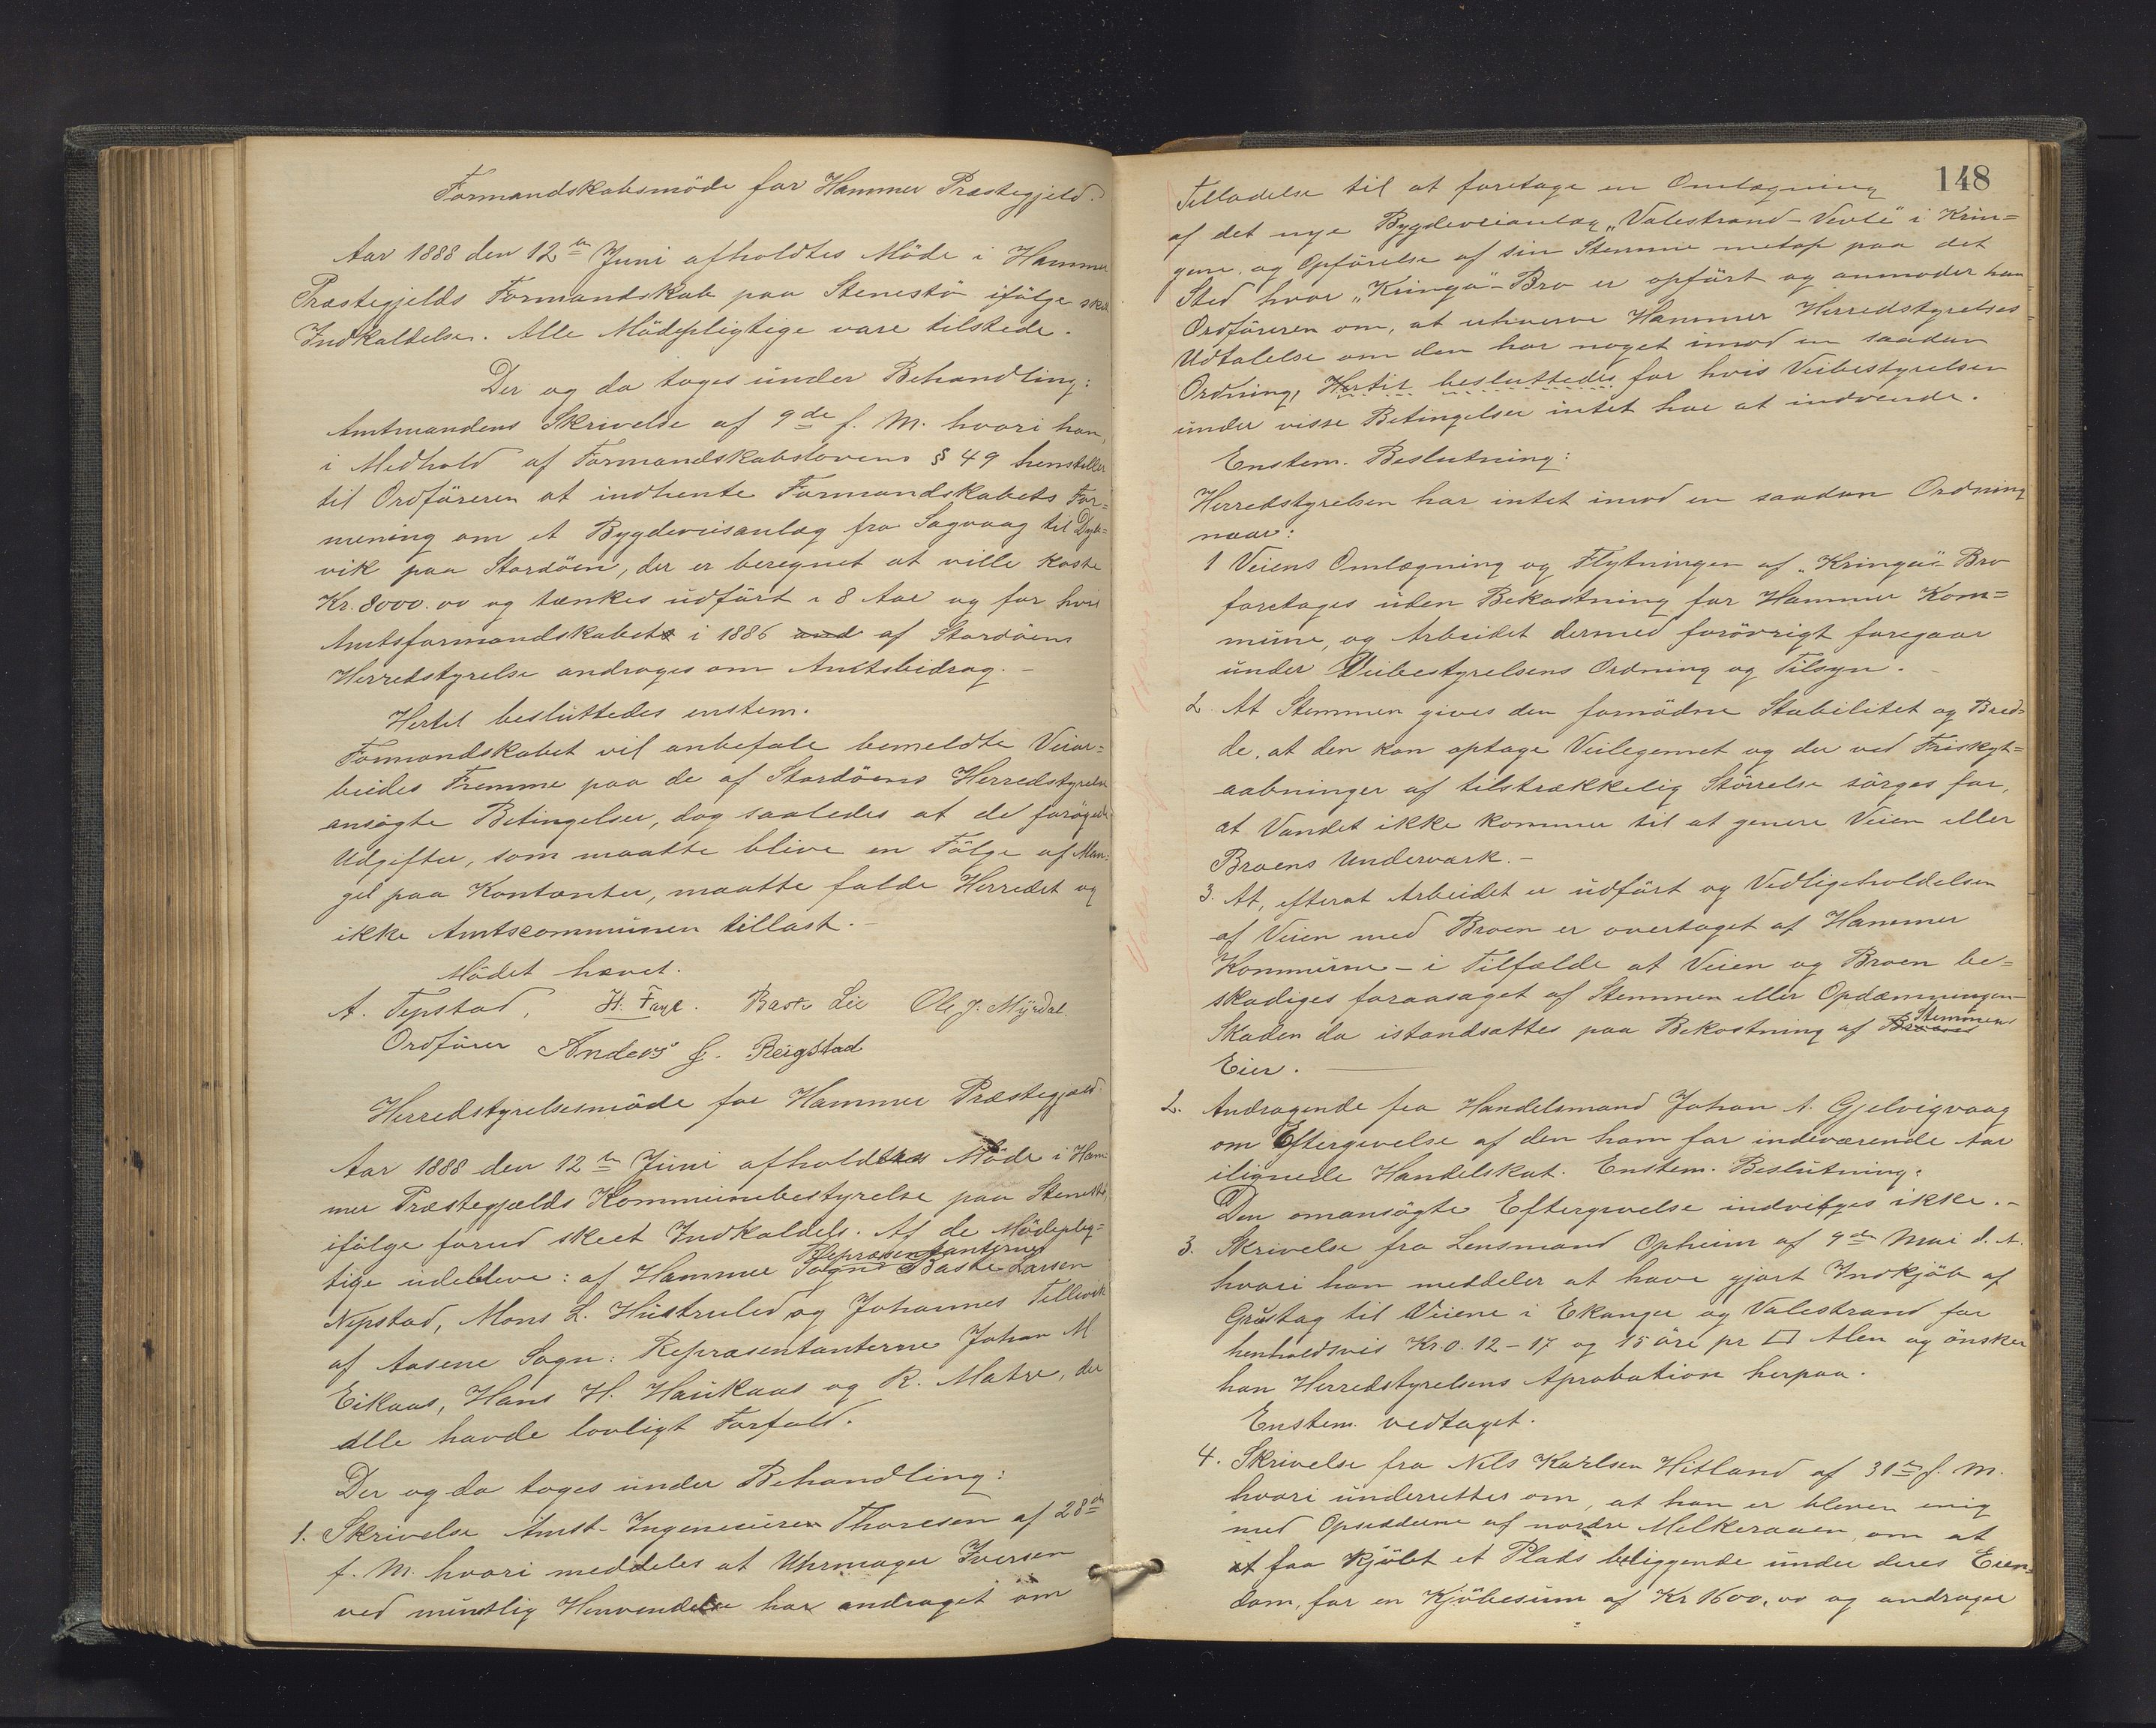 Formandskabsmöde for Hammer Præstegjeld.
Aar 1888 den 12te Juni afholdtes Möde i Hammer
Præstegjelds Formandskab paa Stenestö ifölge skeet
Indkaldelse. Alle Mödepligtige vare tilstede.
Der og da toges under Behandling:
Amtmandens Skrivelse af 9de f. M. hvori han,
i Medhold af Formandskabslovens § 49 henstiller
til Ordföreren at indhente Formandskabets For=
mening om et Bygdeveisanlæg fra Sagvaag til Dyb=
vik paa Stordöen, der er beregnet at ville koste
Kr. 8000.00 og tænkes udfört i 8 Aar og for hvis
Amtsformandskabet i 1886 and af Stordöens
Herredstyrelse androges om Amtsbidrag.-
Hertil besluttedes enstem.
Formandskabet vil anbefale bemeldte Veiar=
beides Fremme paa de af Stordöens Herredstyrelse
ansögte Betingelser, dog saaledes at de forögede
Udgifter, som maatte blive en Fölge af Man=
gel paa Kontanter, maatte falde Herredet og
ikke Amtscommunen tillast.-
Mödet hævet.
A. Tepstad, H. Faye. Bast. Lie Ole J. Myrdal.
Ordförer Anders J. Reigstad
Herredstyrelsesmöde for Hammer Præstegjæld.
Aar 1888 den 12te Juni afholdtes Möde i Ham=
mer Præstegjælds Kommunebestyrelse paa Stenestö,
ifölge forud skeet Indkaldels. Af de Mödeplig=
tige udebleve: af Hammer Sogn Repræsentanterne Baste Larsen
Nepstad, Mons L. Hustruled og Johannes Tellevik
af Aasene Sogn: Repræsentanterne Johan M
Eikaas, Hans H. Haukaas og R. Matre, der
alle havde lovligt Forfald.
Der og da toges under Behandling:
1. Skrivelse Amst-Ingeneiuren Thoresen af 28de
f. M. hvori meddeles at Uhrmager Iversen
ved mundtlig Henvendelse har andraget om
148
Tilladelse til at foretage en Omlægning
af det nye Bygdeveianlæg "Valestrand-Vevle" i Krin=
gen. og Opförelse af sin Stemme netop paa det
Sted hvor "Kringå"-Bro er opfört og anmoder han
Ordföreren om, at erhverve Hammer Herredstyrelses
Udtalelse om den har noget imod en saadan
Ordning, Hertil besluttedes for hvis Veibestyrelsen
under visse Betingelser intet har at indvende.
Enstem. Beslutning:
Herredstyrelsen har intet imod en saadan Ordning
naar:
1 Veiens Omlægning og Flytningen af "Kringåi" Bro
foretages uden Bekostning for Hammer Kom=
mune, og Arbeidet dermed forövrigt foregaar
under Veibestyrelsens Ordning og Tilsyn.
2. At Stemmen gives den fornödne Stabilitet og Bred=
de, at den kan optage Veilegemet og der ved Friskyt=
aabninger af tilstrækkelig Störrelse sörges for,
at Vandet ikke kommer til at genere Veien eller
Broens Underværk.-
3. At, efterat Arbeidet er udfört og Vedligeholdelsen
af Veien med Broen er overtaget af Hammer
Kommune - i Tilfælde at Veien og Broen be=
skadiges foraasaget af Stemmen eller Opdæmningen-
Skaden da istandsættes paa Bekostning af Broens Stemmens
Eier.
2. Andragende fra Handelsmand Johan A. Gjelvigvaag
om Eftergivelse af den ham for indeværende Aar
ilignede Handelskat. Enstem. Beslutning:
Den omansögte Eftergivelse indvilges ikke.-
3. Skrivelse fra Lensmand Opheim af 9de Mai d. A.
hvori han meddeler at have gjort Indkjöb af
Grustag til Veiene i Ekanger og Valestrand for
henholdsvis Kr. 0.12-17 og 15 öre pr □ Alen og önsker
han Herredstyrelsens Aprobation herpaa.
Enstem. vedtaget.
4. Skrivelse fra Nils Karlsen Hitland af 31te f. M.
hvori underrettes om, at han er bleven enig
med Opsidderne af nordre Melkeraaen, om at
at faa kjöbt et Plads beliggende under deres Eien=
dom, for en Kjöbesum af Kr 1600.00 og andrager